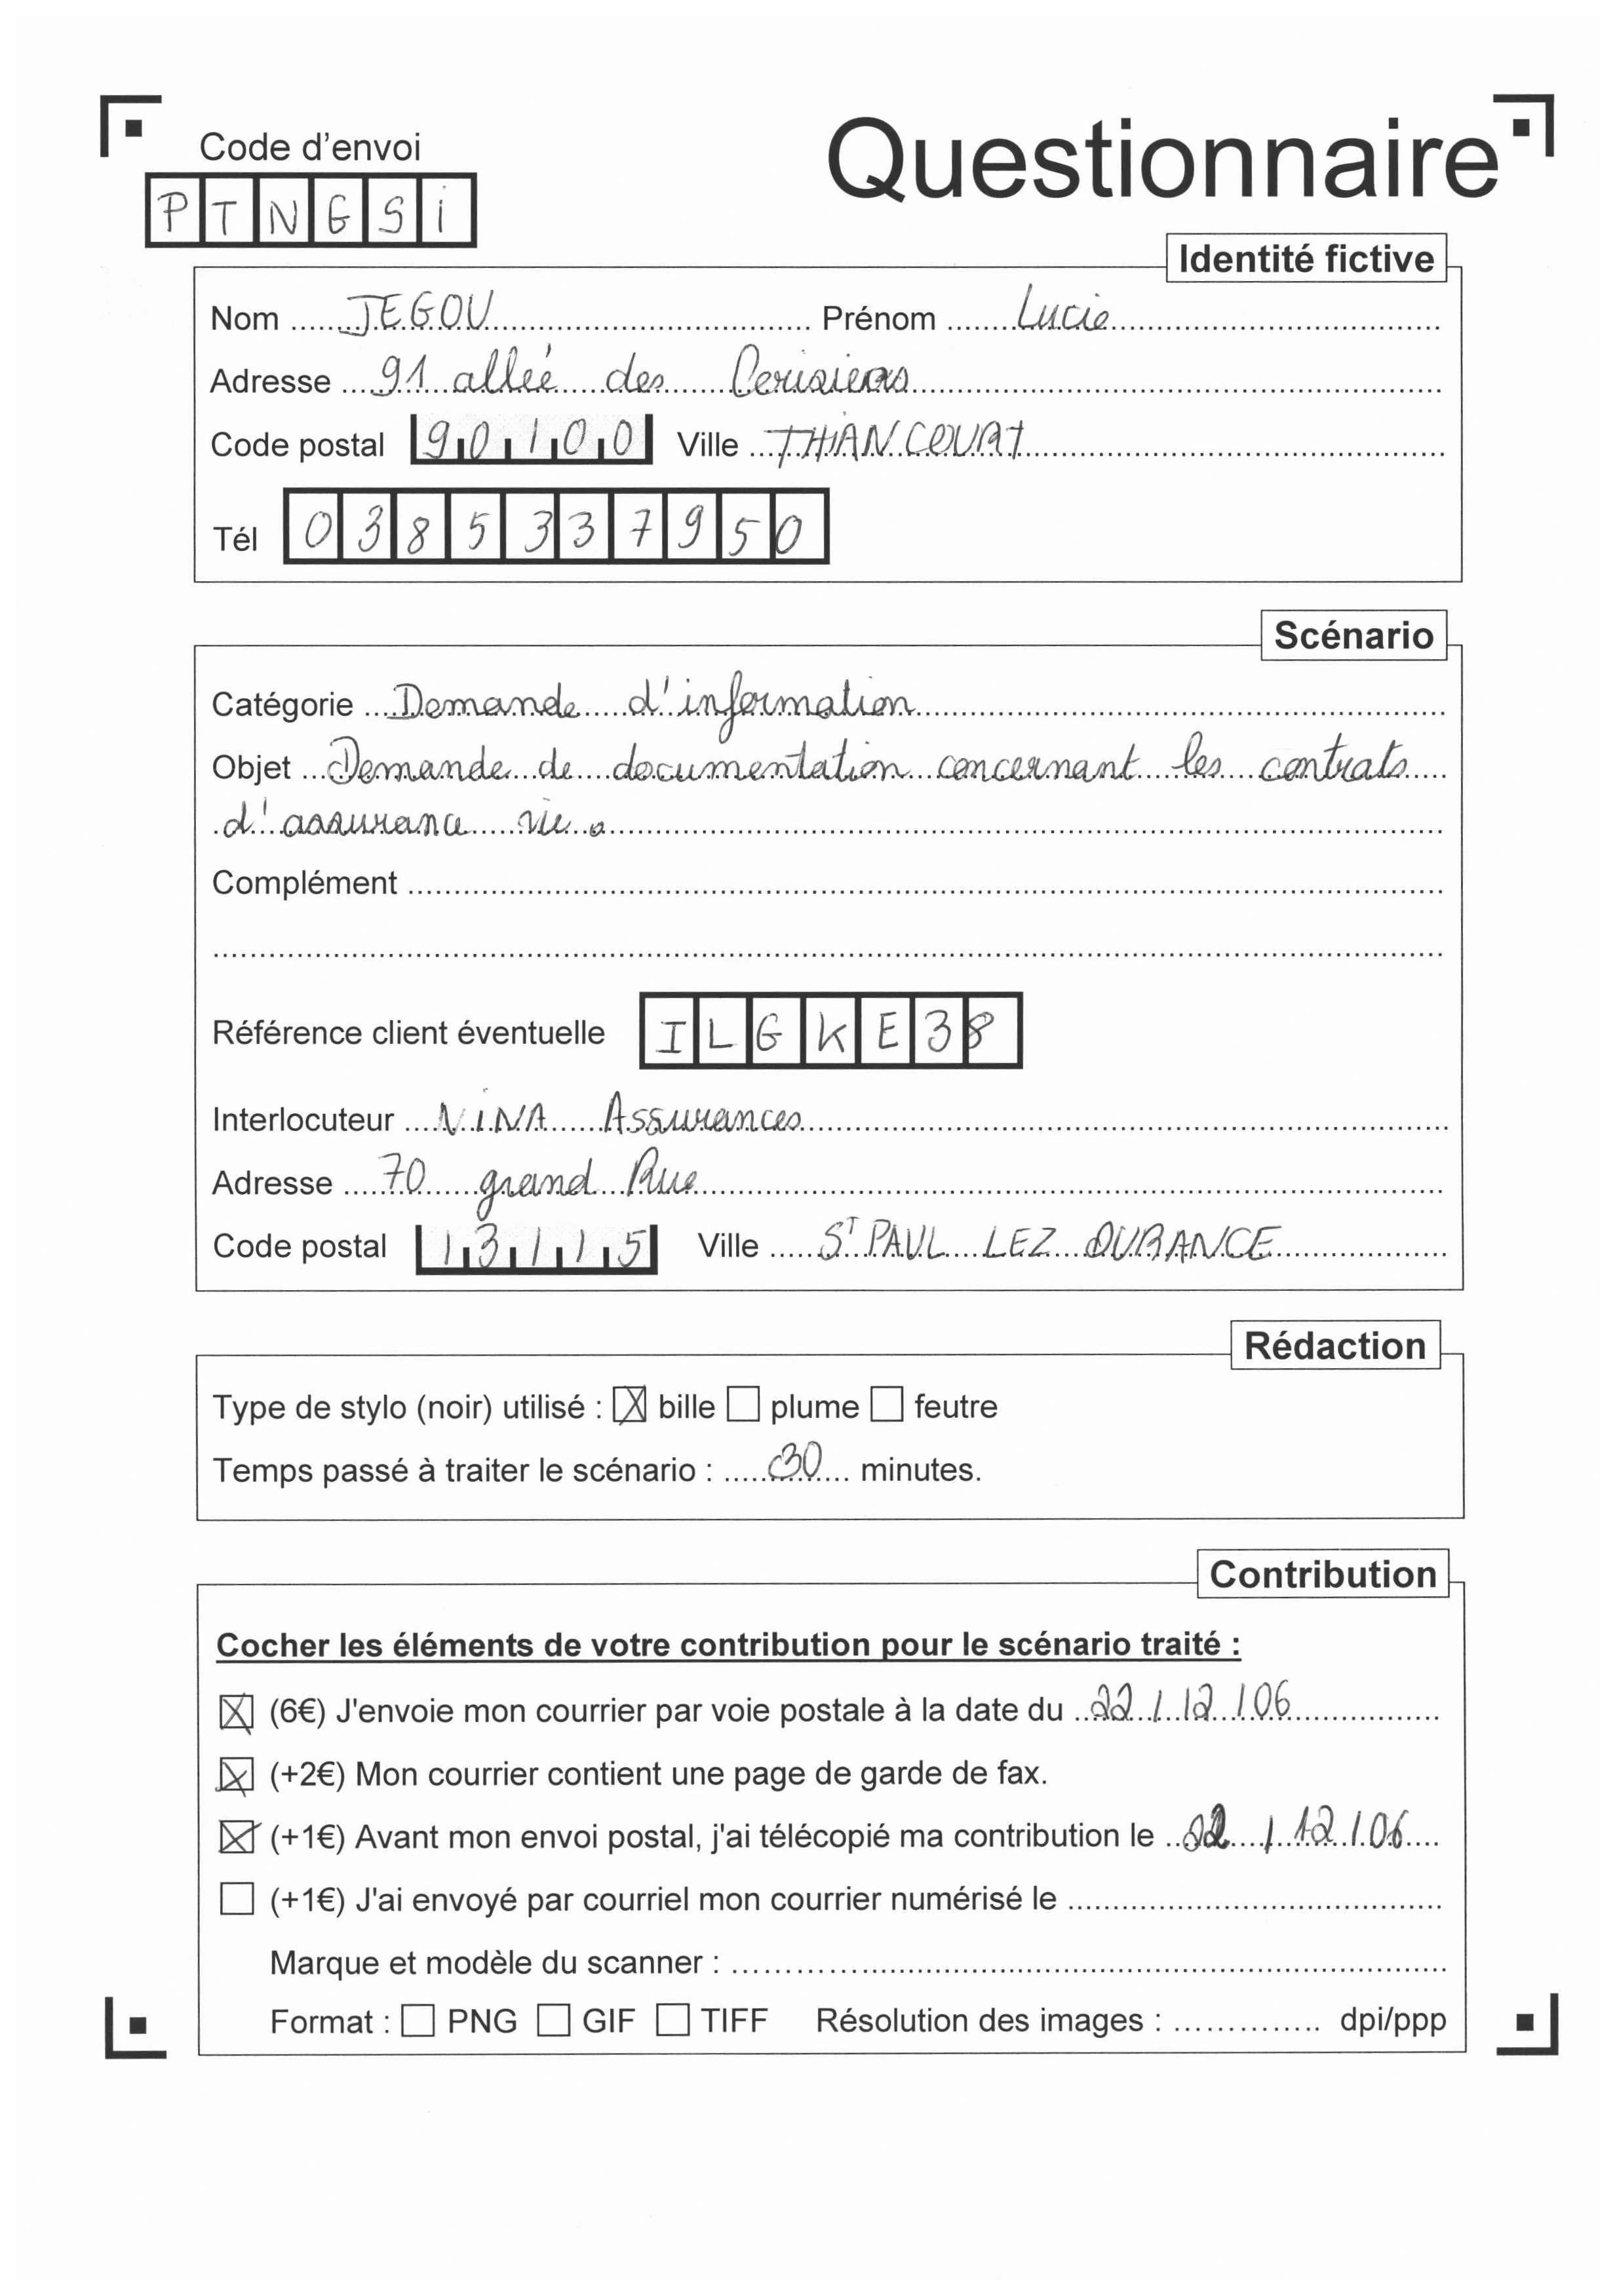 Code d'envoi
Questionnaire
PTNGSi
Identité fictive
Nom JEGOU Prénom Lucie
Adresse 91 allée des Cerisiers
Code postal 90100 Ville THIANCOURT
Tél 0385337950
Scénario
Catégorie Demande d'information
Objet Demande de documentation concernant les contrats
d'assurance vie.
Complément
Référence client éventuelle ILGKE38
Interlocuteur NiNA Assurances
Adresse 70 grand Rue
Code postal 13115 Ville ST PAUL LEZ DURANCE
Rédaction
Type de stylo (noir) utilisé : ☒ bille ☐ plume ☐ feutre
Temps passé à traiter le scénario : 30 minutes.
Contribution
Cocher les éléments de votre contribution pour le scénario traité :
☒ (6€) J'envoie mon courrier par voie postale à la date du 22/12/06
☒ (+2€) Mon courrier contient une page de garde de fax.
☒ (+1€) Avant mon envoi postal, j'ai télécopié ma contribution le 22/12/06
☐ (+1€) J'ai envoyé par courriel mon courrier numérisé le
Marque et modèle du scanner :
Format : ☐ PNG ☐ GIF ☐ TIFF Résolution des images : dpi/ppp